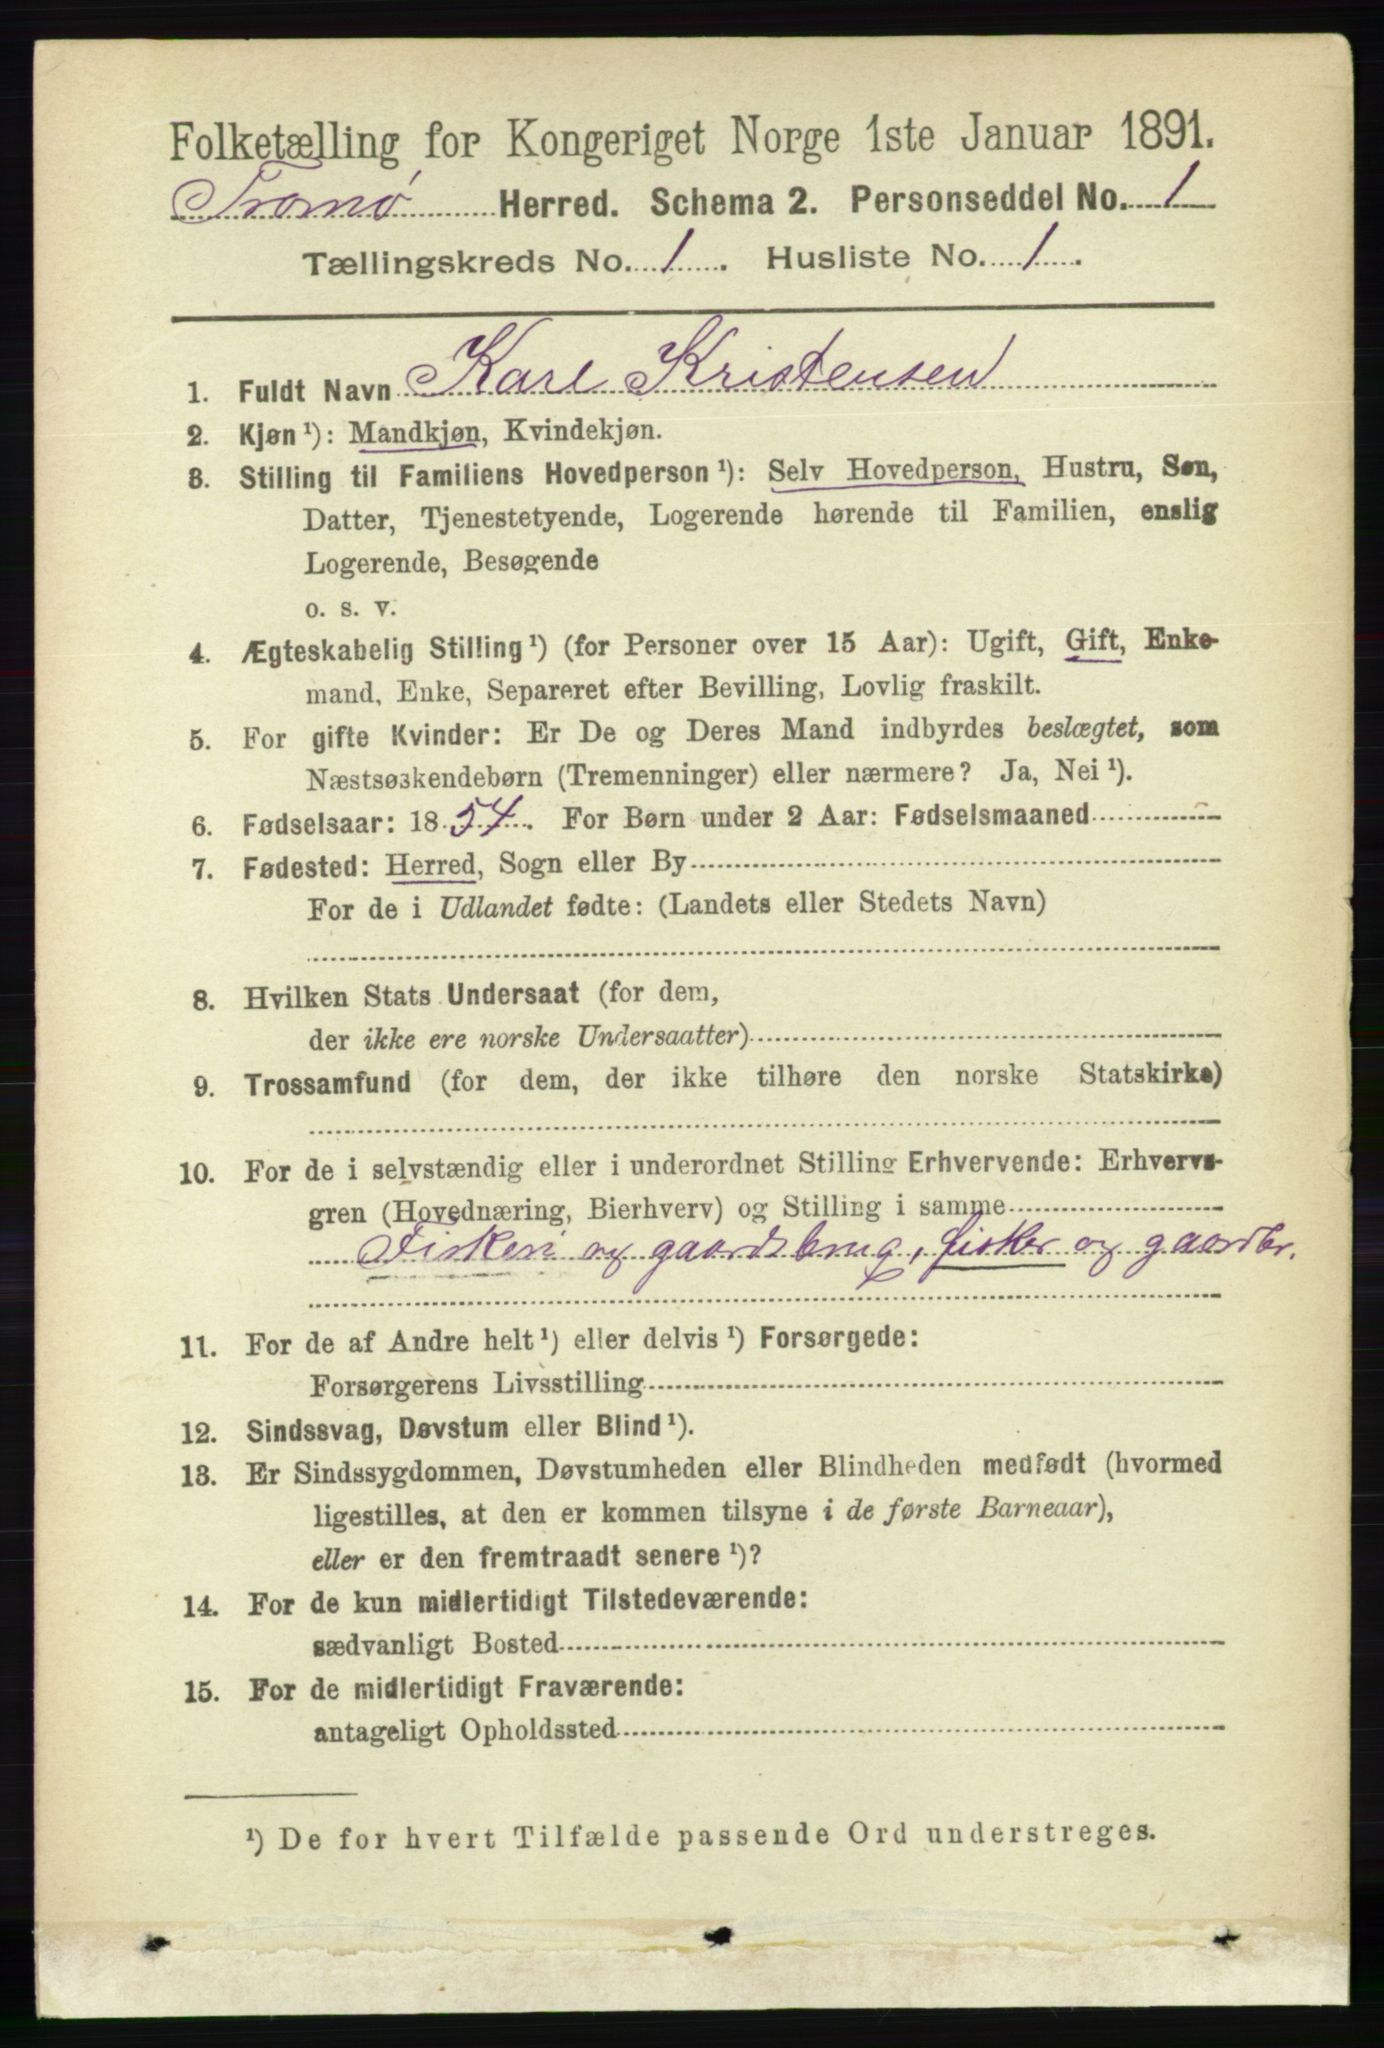 Folketælling for Kongeriget Norge 1ste Januar 1891.
Tromø Herred. Schema 2. Personseddel No. 1
Tællingskreds No. 1. Husliste No. 1.
1. Fuldt Navn Karl Kristensen
2. Kjøn¹): Mandkjøn, Kvindekjøn.
3. Stilling til Familiens Hovedperson¹): Selv Hovedperson, Hustru, Søn,
Datter, Tjenestetyende, Logerende hørende til Familien, enslig
Logerende, Besøgende
o. s. v.
4. Ægteskabelig Stilling¹) (for Personer over 15 Aar): Ugift, Gift, Enke-
mand, Enke, Separeret efter Bevilling, Lovlig fraskilt.
5. For gifte Kvinder: Er De og Deres Mand indbyrdes beslægtet, som
Næstsøskendebørn (Tremenninger) eller nærmere? Ja, Nei¹).
6. Fødselsaar: 1854. For Børn under 2 Aar: Fødselsmaaned
7. Fødested: Herred, Sogn eller By
For de i Udlandet fødte: (Landets eller Stedets Navn)
8. Hvilken Stats Undersaat (for dem,
der ikke ere norske Undersaatter)
9. Trossamfund (for dem, der ikke tilhøre den norske Statskirke)
10. For de i selvstændig eller i underordnet Stilling Erhvervende: Erhvervs-
gren (Hovednæring, Bierhverv) og Stilling i samme
Fiskeri og gaardsbrug, fisker og gaardbr.
11. For de af Andre helt¹) eller delvis¹) Forsørgede:
Forsørgerens Livsstilling
12. Sindssvag, Døvstum eller Blind¹).
13. Er Sindssygdommen, Døvstumheden eller Blindheden medfødt (hvormed
ligestilles, at den er kommen tilsyne i de første Barneaar),
eller er den fremtraadt senere¹)?
14. For de kun midlertidigt Tilstedeværende:
sædvanligt Bosted
15. For de midlertidigt Fraværende:
antageligt Opholdssted
¹) De for hvert Tilfælde passende Ord understreges.